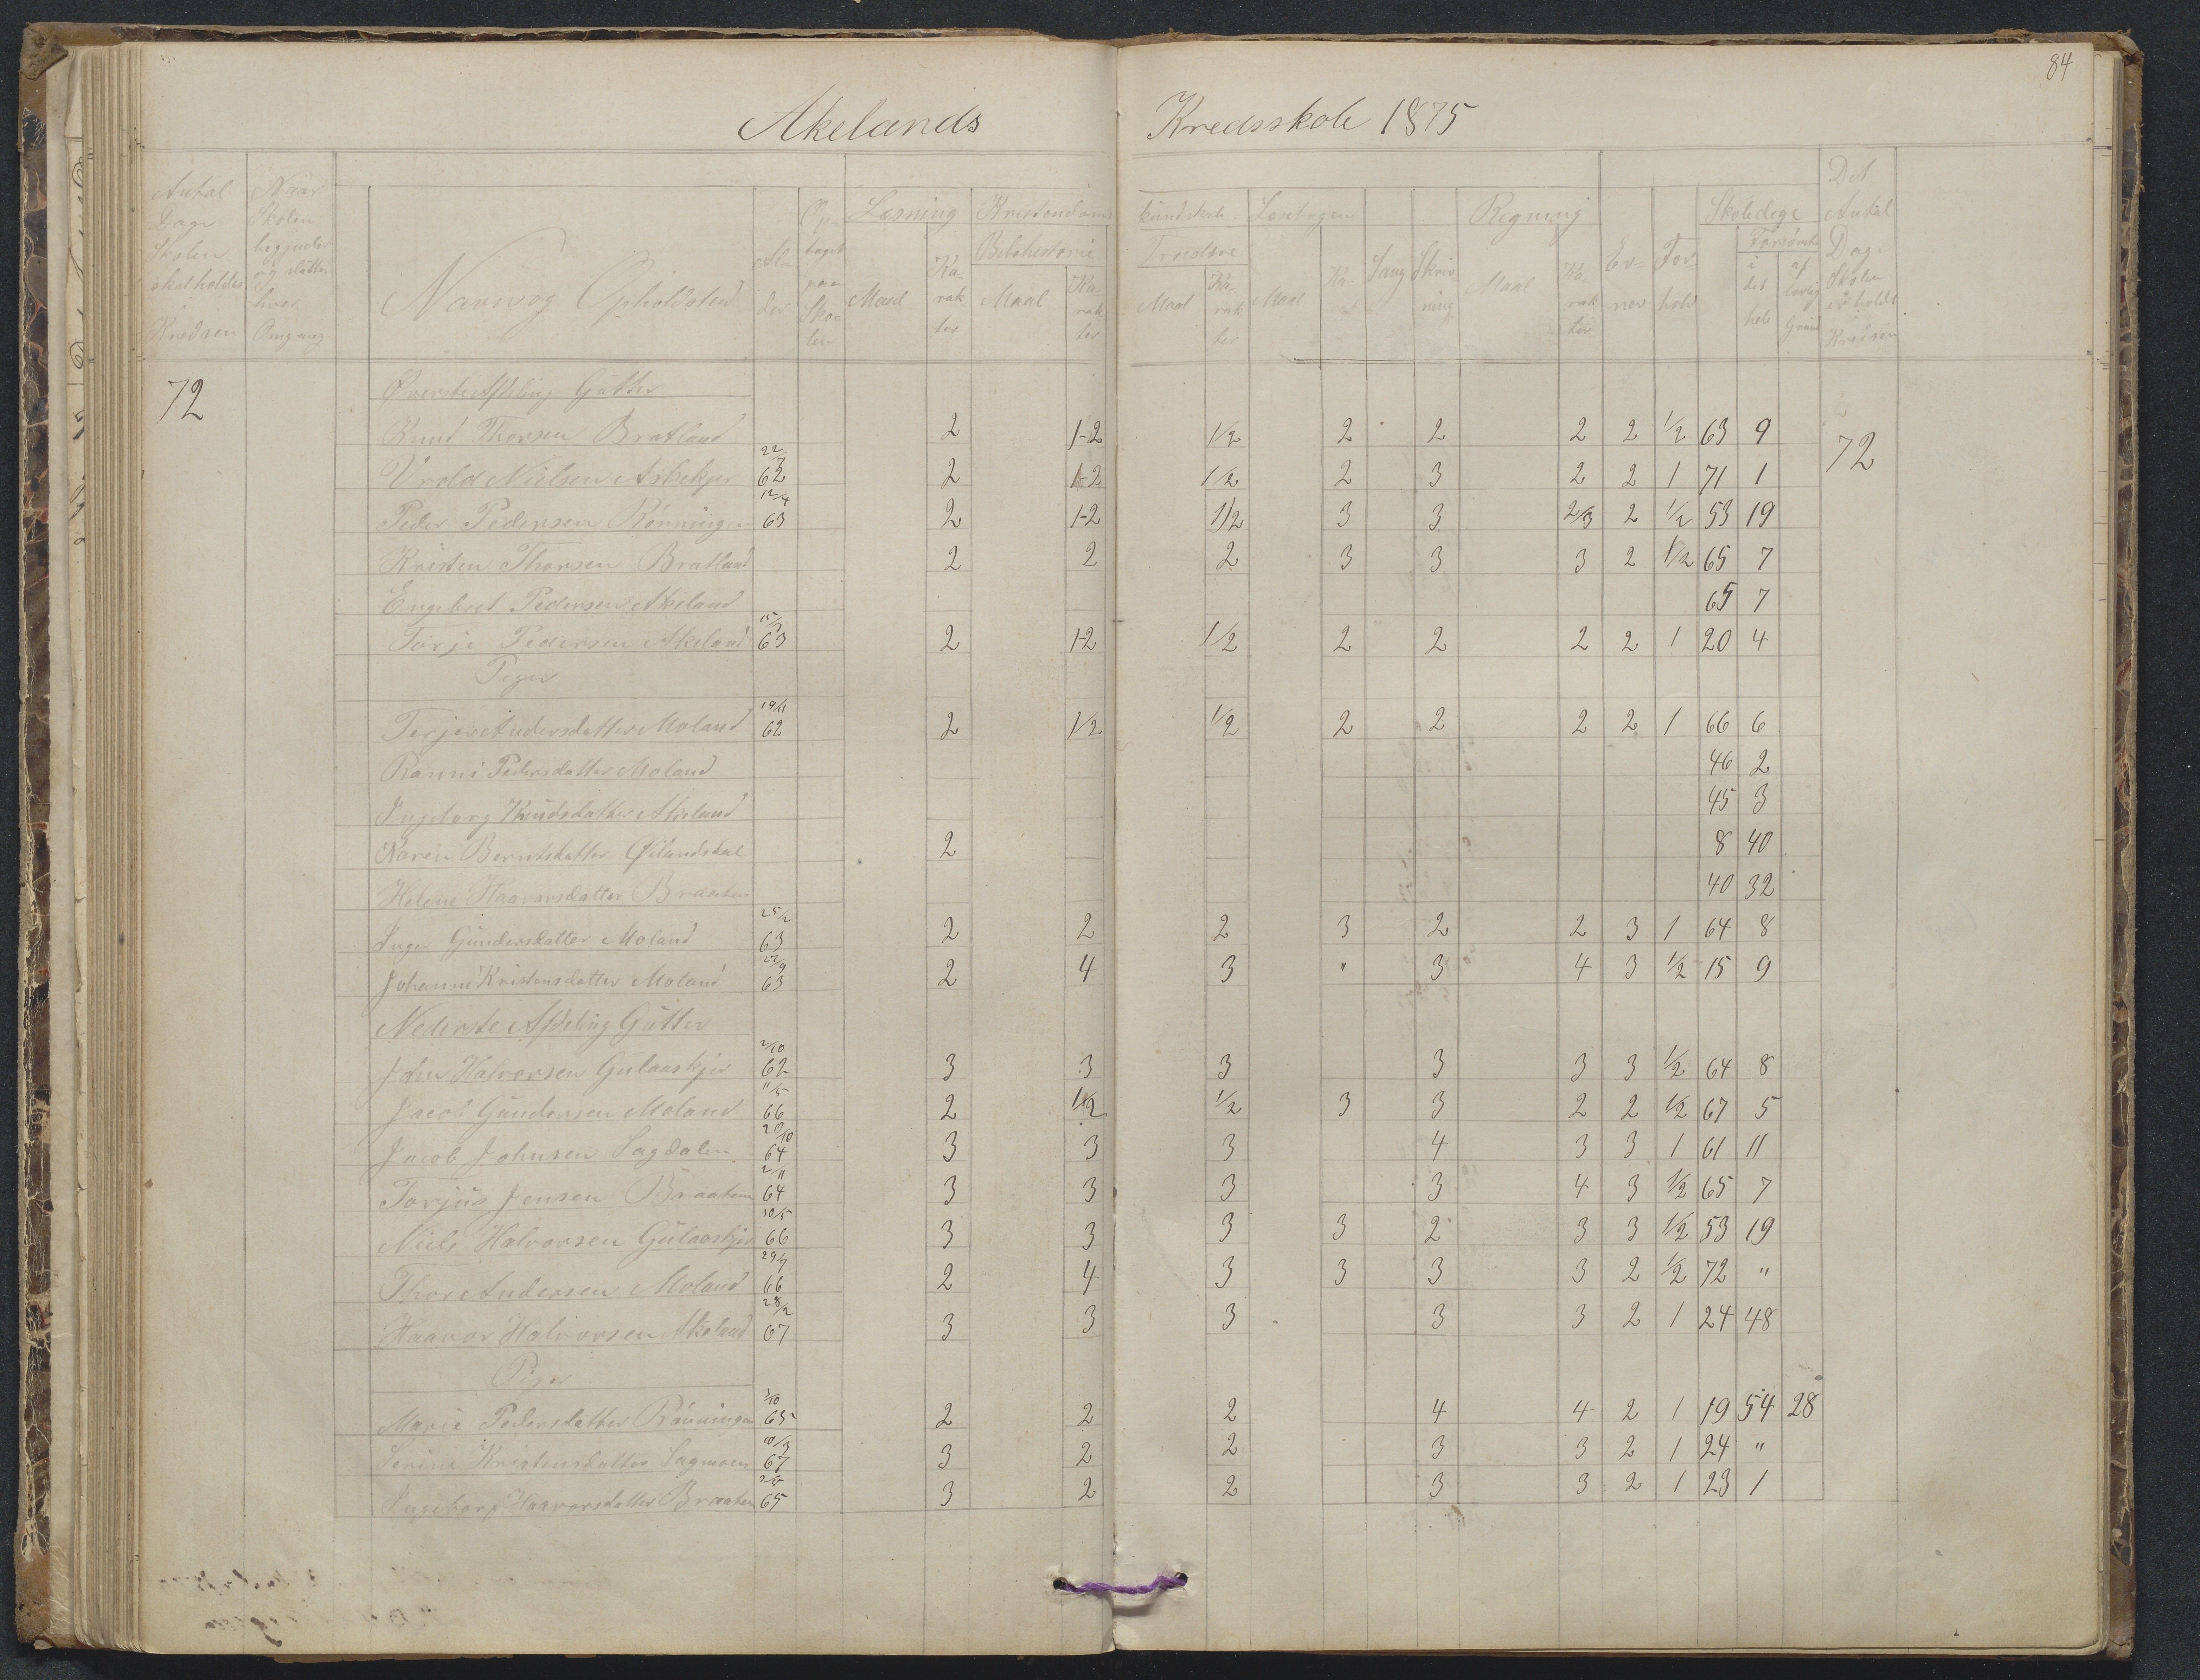 84
Akelands Kredsskole 1875
Antal Dage Skolen skal holdes i Kredsen
Naar Skolen begynder og slutter hver Omgang
Navn og Opholdsted
Alder
Optaget paa Skolen
Læsning Maal Karakter
Kristendomskundskab Bibelhistorie Maal Karakter Troeslære Maal Karakter
Læsebogen Maal Karak
Sang
Skrivning
Regning Maal Karakter
Evner
Forhold
Skoledage Forsømte i det hele af lovlig Grund
Det Antal Dage Skolen er holdt i Kredsen
72 Øverste Afdeling Gutter
Knud Thorsen Bratland 2 1-2 1/2 2 2 2 2 1/2 63 9
72
Vrold Nielsen Askekjer 22/7 62 2 1-2 1/2 2 3 2 2 1 71 1
Peder Pedersen Rønningen 12/4 63 2 1-2 1/2 3 3 2/3 2 1/2 53 19
Kristen Thorsen Bratland 2 2 2 3 3 3 2 1/2 65 7
Engebret Pedersen Akeland 65 7
Torje Pedersen Akeland 15/7 63 2 1-2 1/2 2 2 2 2 1 20 4
Piger
Terjer Andersdatter Moland 19/11 62 2 1/2 1/2 2 2 2 2 1 66 6
Ranni Pedersdatter Moland 46 2
Ingeborg Knudsdatter Akeland 45 3
Karen Berntsdatter 2 8 40
Helene Haavorsdatter Braaten 40 32
Inger Gundersdatter Moland 25/2 63 2 2 2 3 2 2 3 1 64 8
Johanne Kristensdatter Moland 22/9 63 2 4 3 " 3 4 3 1/2 15 9
Nederste Afdeling Gutter
John Halvorsen Gulaaskjer 2/10 62 3 3 3 3 3 3 1/2 64 8
Jacob Gundersen Moland 11/5 66 2 1/2 1/2 3 3 2 2 1/2 67 5
Jacob Johnsen Sagdalen 20/10 64 3 3 3 4 3 3 1 61 11
Torjus Jensen Braaten 2/11 64 3 3 3 3 4 3 1/2 65 7
Niels Halvorsen Gulaaskjer 30/5 66 3 3 3 3 2 3 3 1/2 53 19
Thor Andersen Moland 29/7 66 2 4 3 3 3 3 2 1/2 72 "
Haavor Halvorsen Akeland 28/2 67 3 3 3 3 3 2 1 24 48
Piger
Marie Pedersdatter Rønningen 3/10 65 2 2 2 4 4 2 1 19 54 28
Serine Kristensdatter Sagmoen 10/3 67 3 2 2 3 3 2 1 24 "
Ingeborg Haavorsdatter Braaten 65 3 2 2 3 3 2 1 23 1